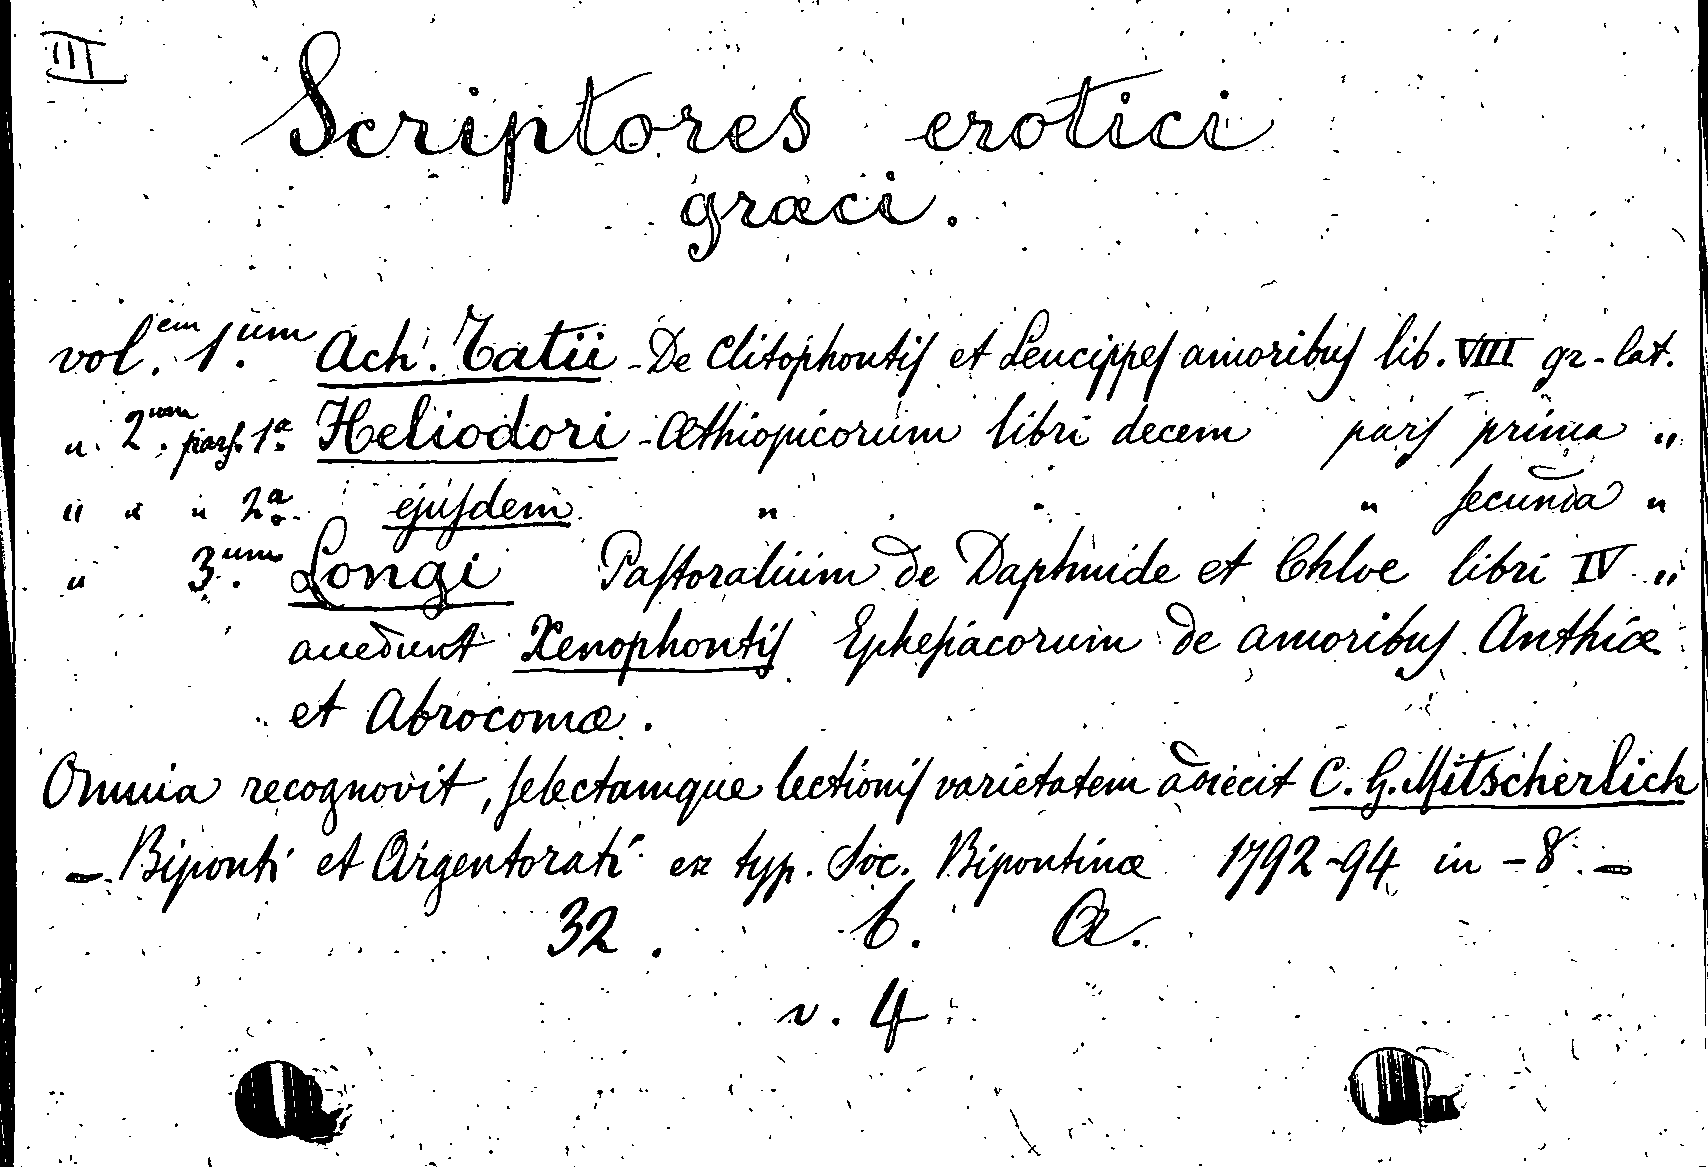 III
Scriptores erotici
græci.
vol.em 1.um Ach. Tatii - De Clitophontis et Leucippes amoribus lib. VIII gr-lat.
" 2.um pars. 1a Heliodori - Æthiopicorum libri decem pars prima "
" " " 2a. ejusdem " " " secunda "
" 3.um Longi Pastoralium de Daphnide et Chloe libri IV "
accedunt Xenophontis Ephesiacorum de amoribus Anthiæ
et Abrocomæ.
Omnia recognovit, selectamque lectionis varietatem adiecit C. G. Mitscherlich
- Biponti et Argentorati ex typ. Soc. Bipontinæ 1792-94 in - 8. -
32. b. A.
v. 4